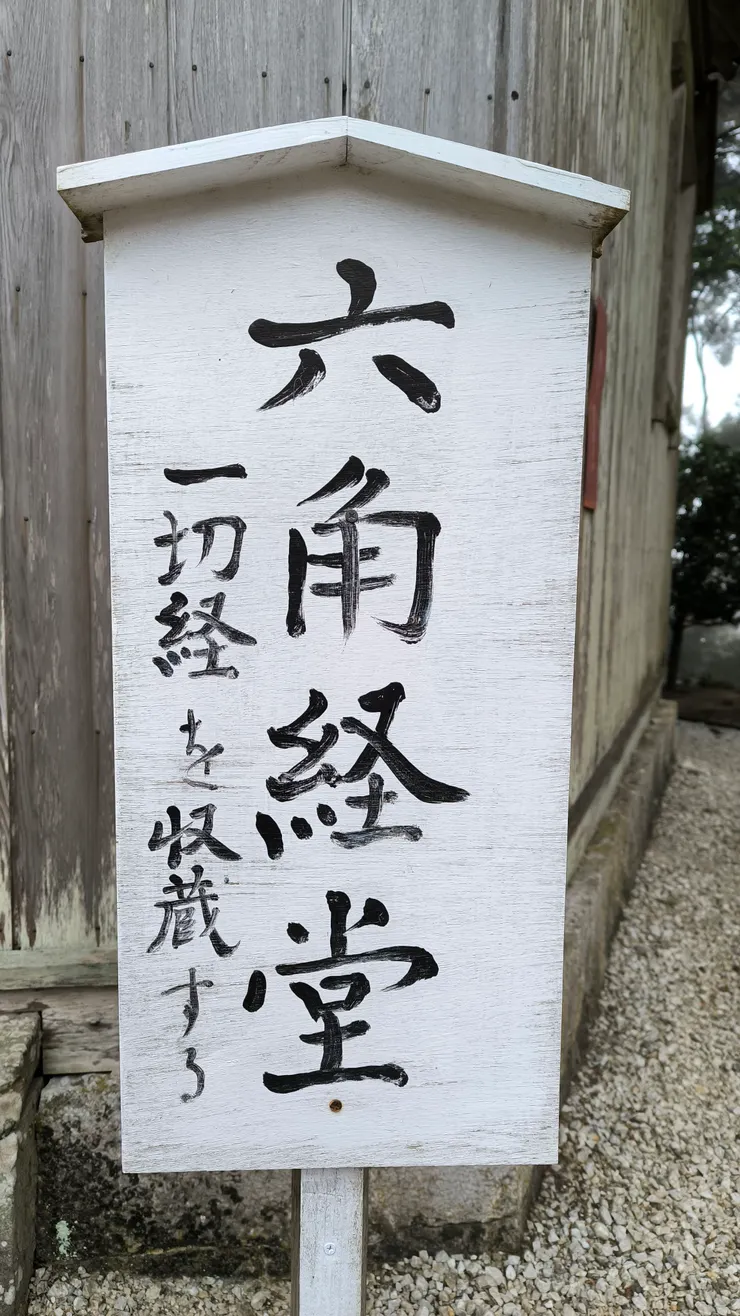 六角経堂
一切経を収蔵する